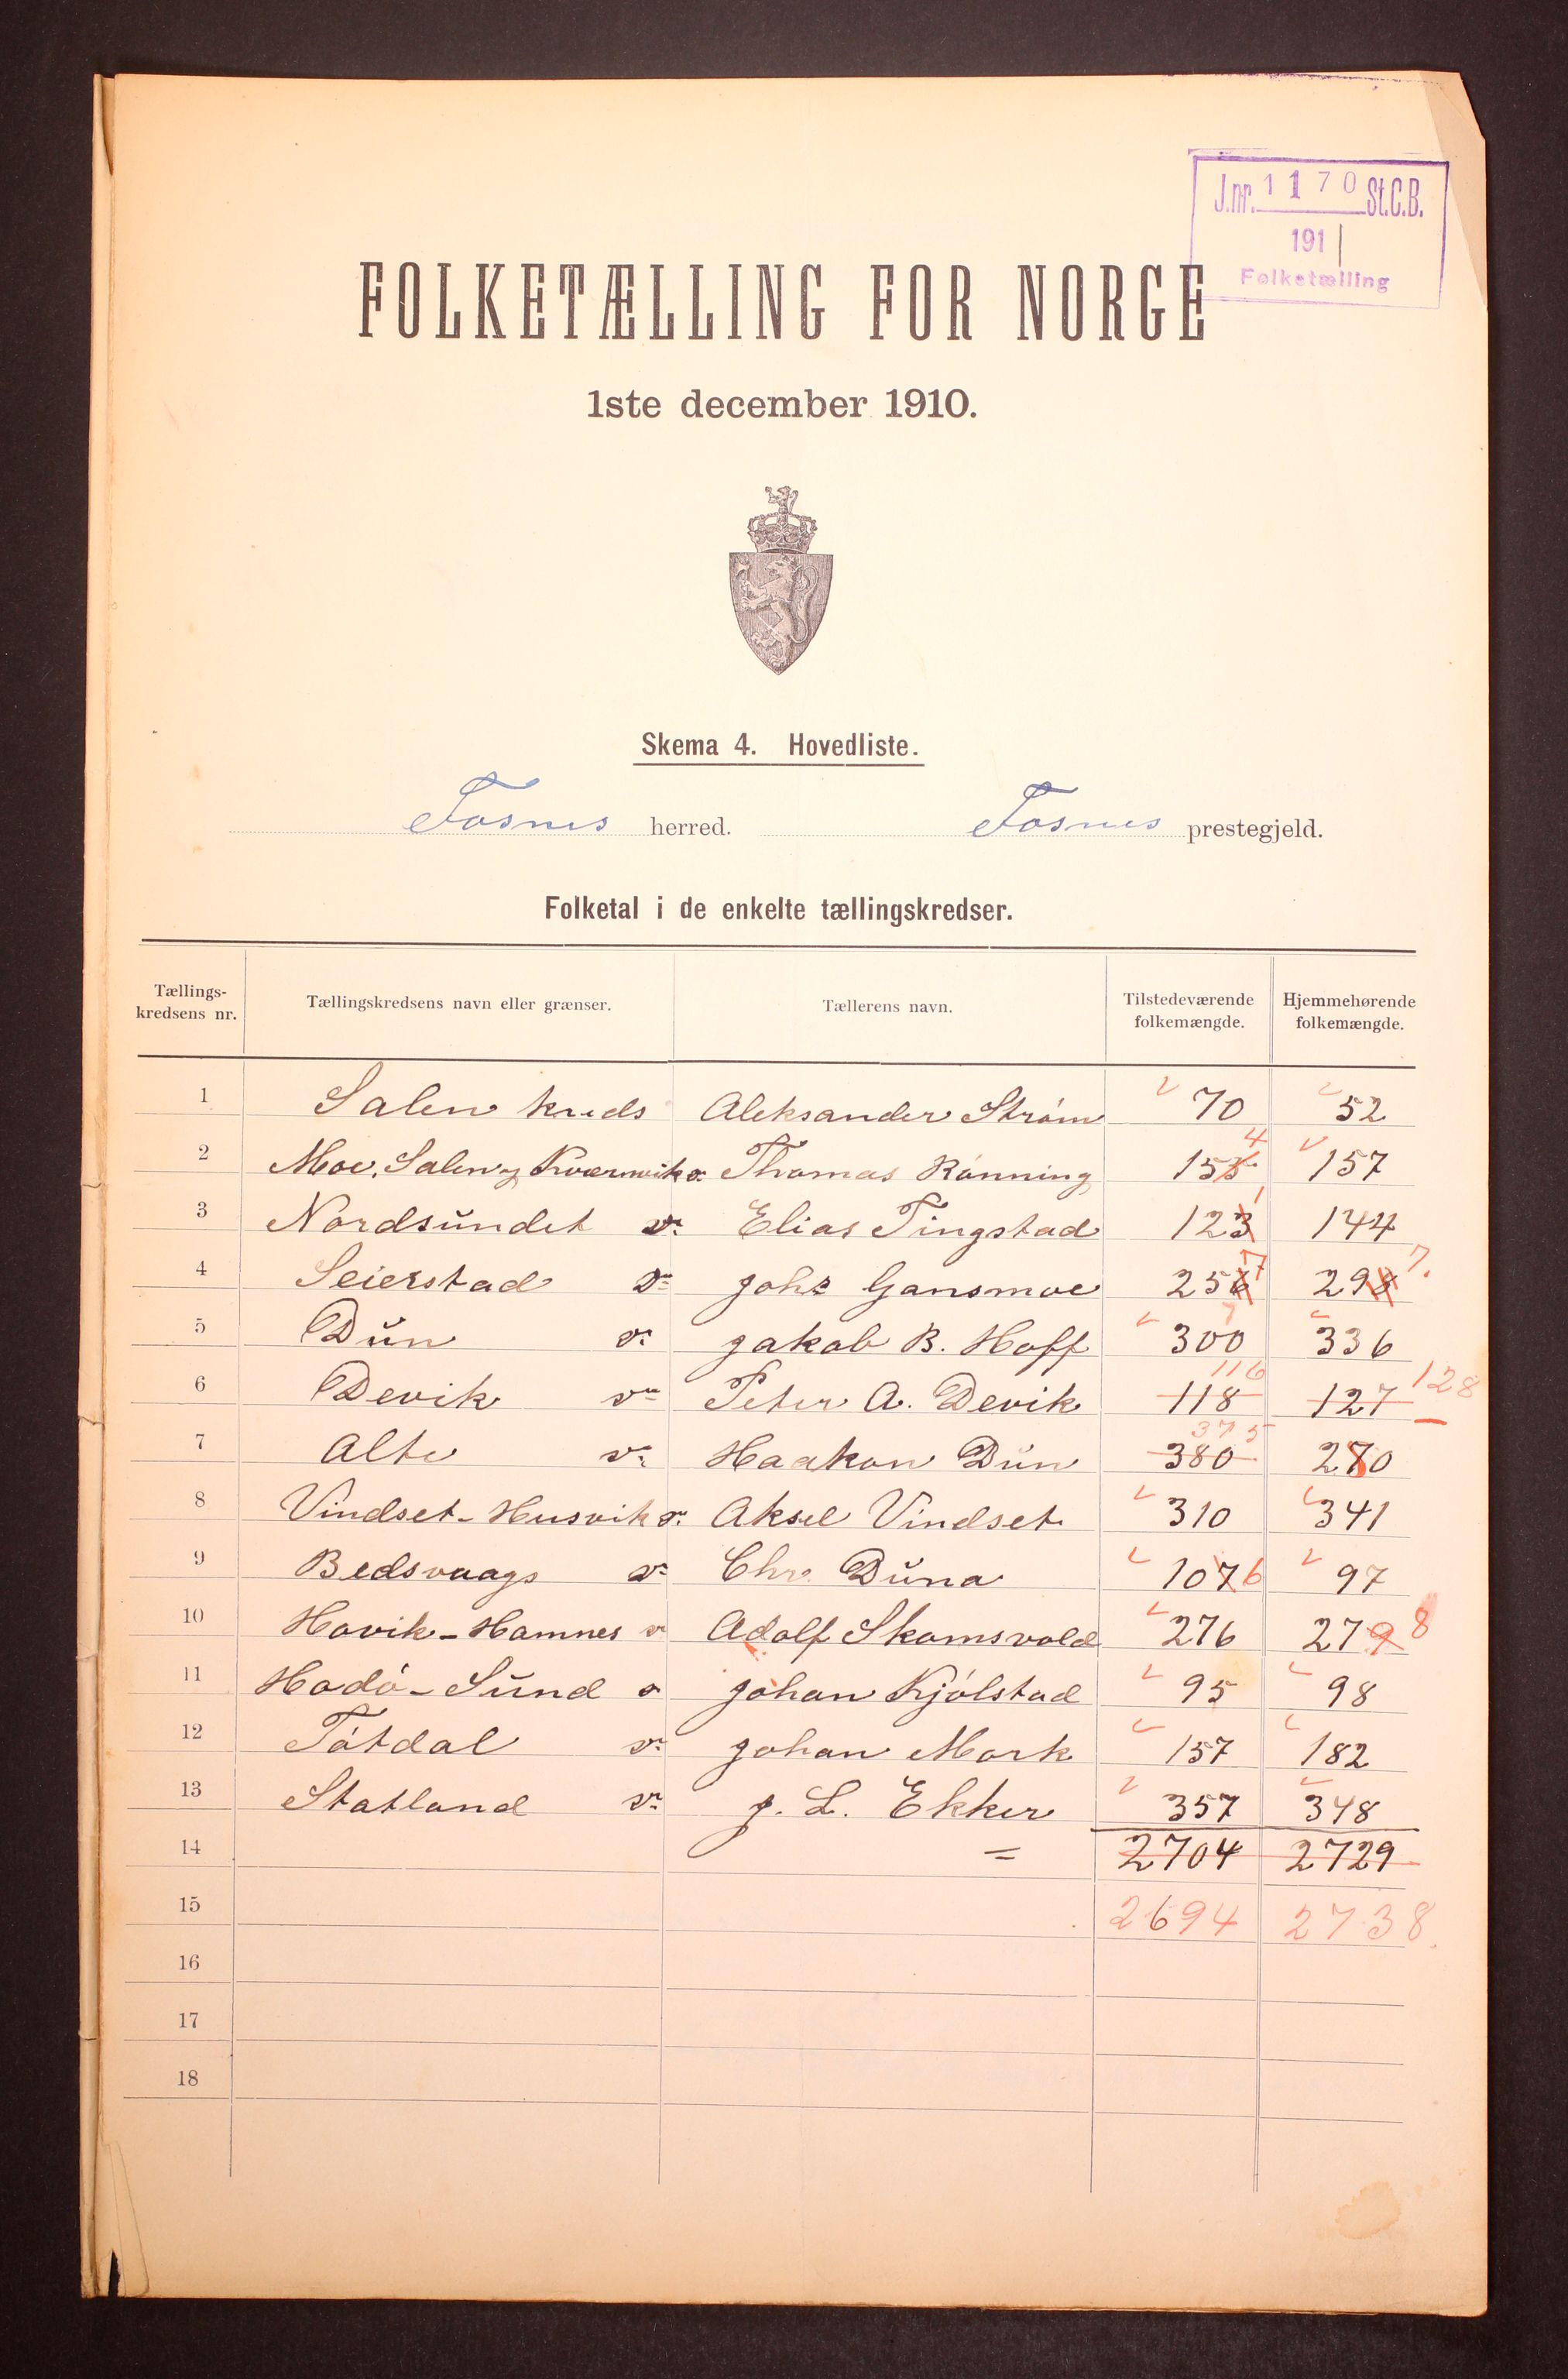 J.nr. 1170 St.C.B.
191 |
Folketælling
FOLKETÆLLING FOR NORGE
1ste december 1910.
Skema 4. Hovedliste.
Fosnes herred. Fosnes prestegjeld.
Folketal i de enkelte tællingskredser.
Tællings-kredsens nr. Tællingskredsens navn eller grænser. Tællerens navn. Tilstedeværende folkemængde. Hjemmehørende folkemængde.
1 Salen kreds Aleksander Strøm 70 52
2 Moe, Salen og Kværnvik do Thomas Rønning 155 4 157
3 Nordsundet do Elias Tingstad 123 1 144
4 Seierstad do Johs Gansmoe 256 7 298 7.
5 Dun do Jakob B. Hoff 300 336
6 Devik do Peter A. Devik 118 116 127 128
7 Alte do Haakon Dun 380 375 280
8 Vindset-Husvik do Aksel Vindset 310 341
9 Bedsvaags do Chr. Duna 107 6 97
10 Hovik-Hamnes do Adolf Skomsvold 276 279 8
11 Hodø-Sund do Johan Kjølstad 95 98
12 Tøtdal do Johan Mork 157 182
13 Statland do J. L. Ekker 357 348
14 = 2704 2729
15 2694 2738.
16
17
18